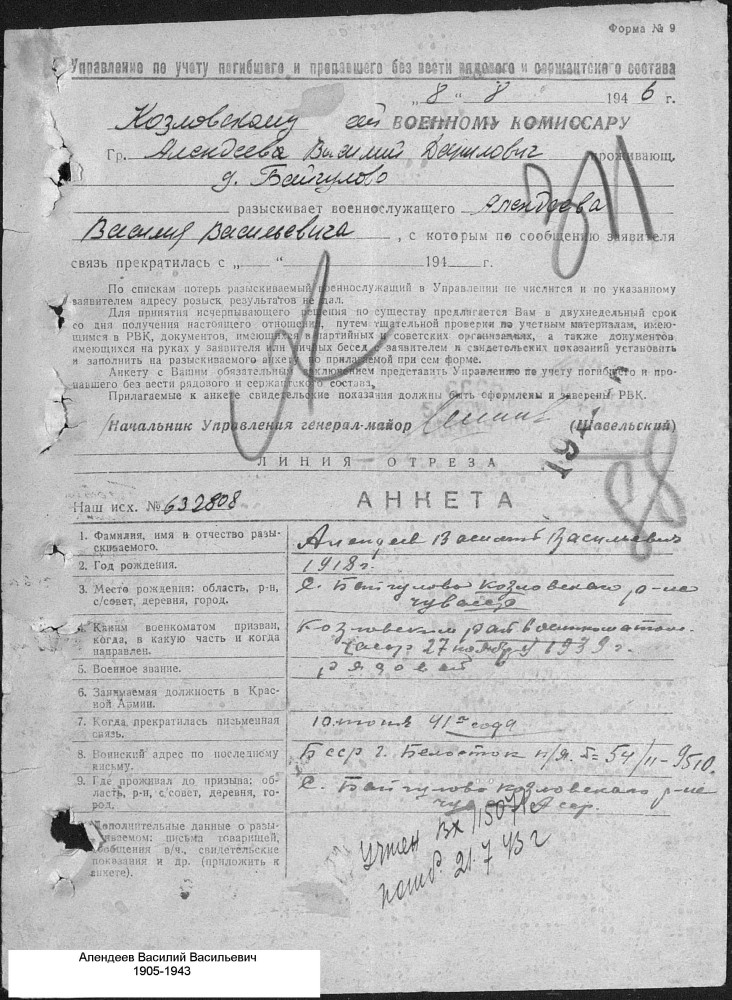 Форма № 9
Управление по учету погибшего и пропавшего без вести рядового и сержантского состава
„8“ 8 1946 г.
Козловскому ВОЕННОМУ КОМИССАРУ
Гр. Алендеева Василий Данилович проживающ.
д. Байгулово
разыскивает военнослужащего Алендеева
Василия Васильевича, с которым по сообщению заявителя
связь прекратилась с „ “ 194 г.
По спискам потерь разыскиваемый военнослужащий в Управлении не числится и по указанному
заявителем адресу розыск результатов не дал.
Для принятия исчерпывающего решения по существу предлагается Вам в двухнедельный срок
со дня получения настоящего отношения, путем тщательной проверки по учетным материалам, имею-
щимся в РВК, документов, имеющихся в партийных и советских организациях, а также документов
имеющихся на руках у заявителя или личных бесед с заявителем и свидетельских показаний установить
и заполнить на разыскиваемого анкету по прилагаемой при сем форме.
Анкету с Вашим обязательным заключением представить Управлению по учету погибшего и про-
павшего без вести рядового и сержантского состава.
Прилагаемые к анкете свидетельские показания должны быть оформлены и заверены РВК.
Начальник Управления генерал-майор (Шавельский)
ЛИНИЯ ОТРЕЗА
Наш исх. № 632808
АНКЕТА
1. Фамилия, имя и отчество разы-
скиваемого.
Алендеев Василий Васильевич
2. Год рождения.
1918 г.
3. Место рождения: область, р-н,
с/совет, деревня, город.
С. Байгулово Козловского р-на
4. Каким военкоматом призван,
когда, в какую часть и когда
направлен.
Козловским райвоенкоматом
27 ноября 1939 г.
5. Военное звание.
рядовой
6. Занимаемая должность в Крас-
ной Армии.
7. Когда прекратилась письменная
связь.
10 июня 41го года
8. Воинский адрес по последнему
письму.
Бсср г. Белосток п/я 54/11-9510.
9. Где проживал до призыва: об-
ласть, р-н, с/совет, деревня, го-
род.
С. Байгулово Козловского р-на
Асср.
Дополнительные данные о разы-
скиваемом: письма товарищей,
сообщения в/ч., свидетельские
показания и др. (приложить к
анкете).
Учтен вх 11507
погиб. 21.7 43 г
Алендеев Василий Васильевич
1905-1943